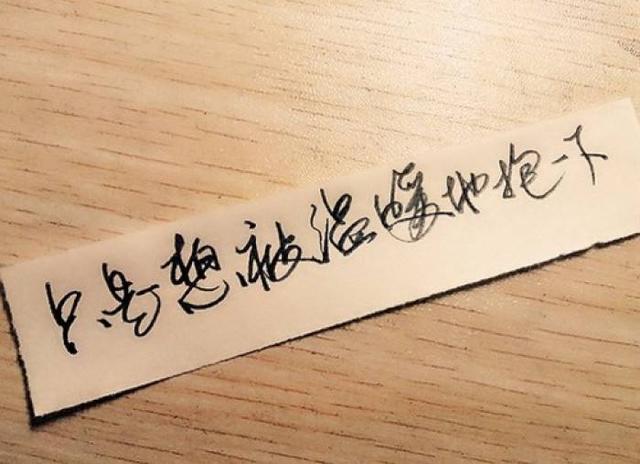 只是想被温暖地抱一下